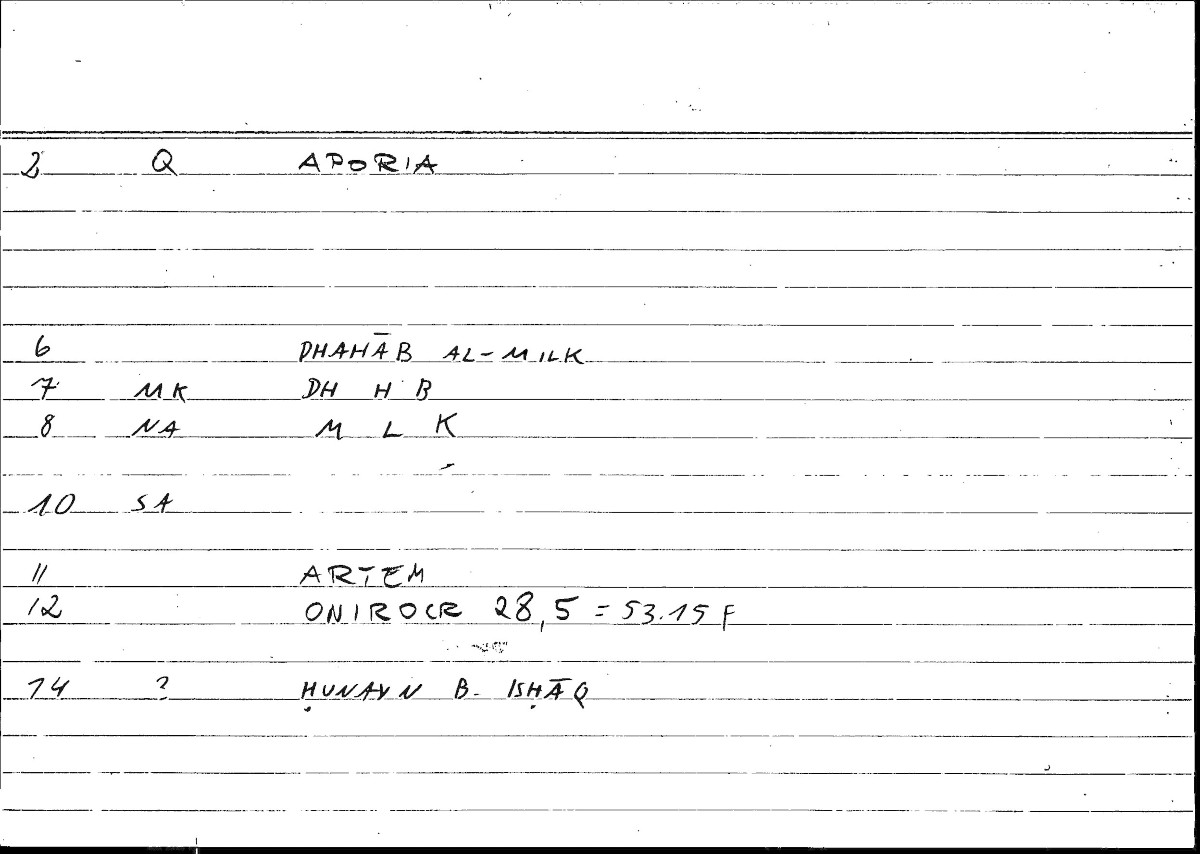 2 Q APORIA
6 DHAHĀB AL-MILK
7 MK DH H B
8 NA M L K
10 SA
11 ARTEM
12 ONIROCR 28,5 = 53.15 F
14 ? ḤUNAYN B. ISḤĀQ